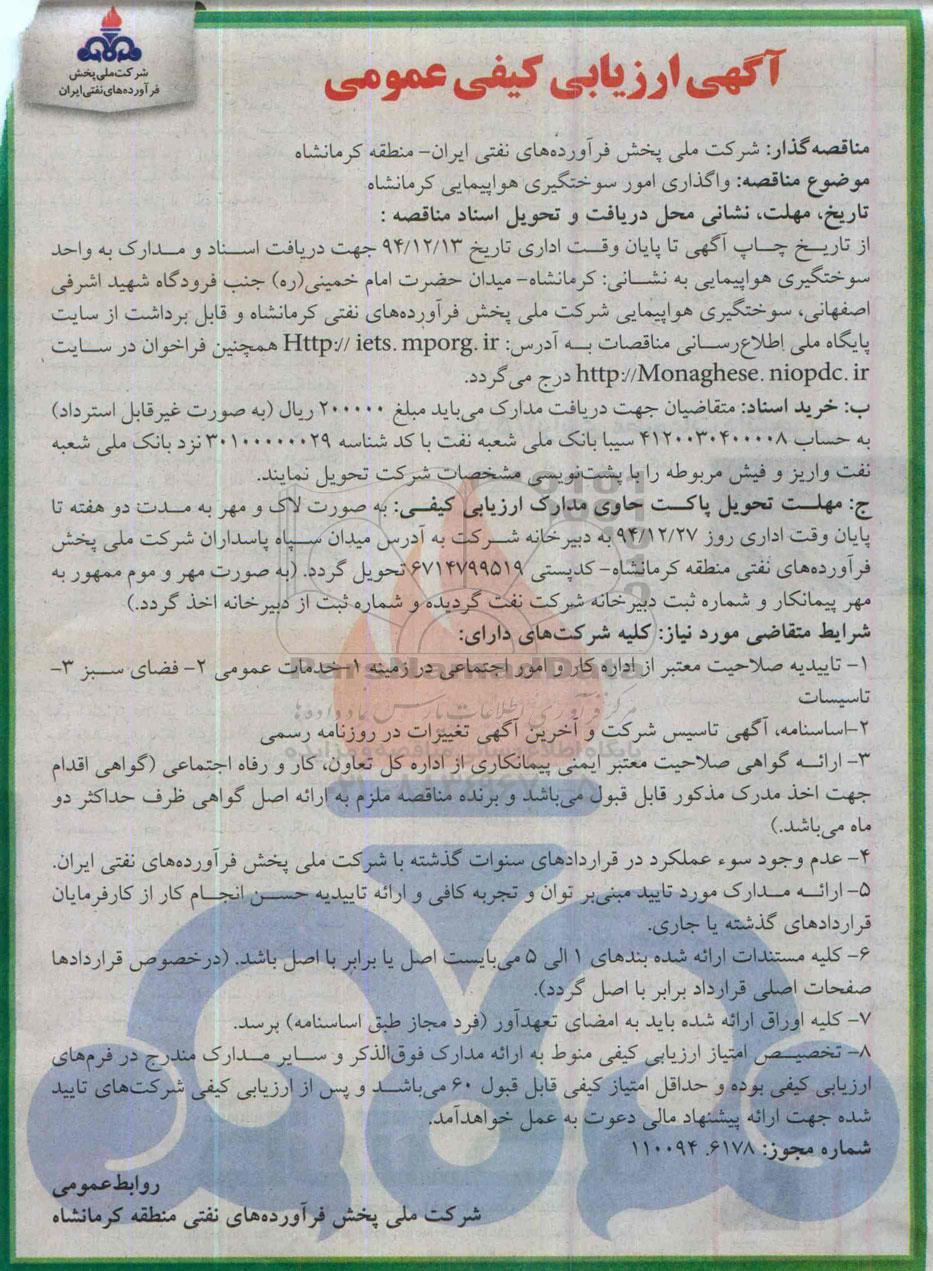 شرکت ملی پخش
فرآورده‌های نفتی ایران
آگهی ارزیابی کیفی عمومی
مناقصه‌گذار: شرکت ملی پخش فرآورده‌های نفتی ایران- منطقه کرمانشاه
موضوع مناقصه: واگذاری امور سوختگیری هواپیمایی کرمانشاه
تاریخ، مهلت، نشانی محل دریافت و تحویل اسناد مناقصه :
از تاریخ چاپ آگهی تا پایان وقت اداری تاریخ ۹۴/۱۲/۱۳ جهت دریافت اسناد و مدارک به واحد
سوختگیری هواپیمایی به نشانی: کرمانشاه- میدان حضرت امام خمینی(ره) جنب فرودگاه شهید اشرفی
اصفهانی، سوختگیری هواپیمایی شرکت ملی پخش فرآورده‌های نفتی کرمانشاه و قابل برداشت از سایت
پایگاه ملی اطلاع‌رسانی مناقصات به آدرس: Http:// iets. mporg. ir همچنین فراخوان در سایت
http://Monaghese. niopdc. ir درج می‌گردد.
ب: خرید اسناد: متقاضیان جهت دریافت مدارک می‌باید مبلغ ۲۰۰۰۰۰ ریال (به صورت غیرقابل استرداد)
به حساب ۴۱۲۰۰۳۰۴۰۰۰۰۸ سیبا بانک ملی شعبه نفت با کد شناسه ۳۰۱۰۰۰۰۰۰۲۹ نزد بانک ملی شعبه
نفت واریز و فیش مربوطه را با پشت‌نویسی مشخصات شرکت تحویل نمایند.
ج: مهلت تحویل پاکت حاوی مدارک ارزیابی کیفی: به صورت لاک و مهر به مدت دو هفته تا
پایان وقت اداری روز ۹۴/۱۲/۲۷ به دبیرخانه شرکت به آدرس میدان سپاه پاسداران شرکت ملی پخش
فرآورده‌های نفتی منطقه کرمانشاه- کدپستی ۶۷۱۴۷۹۹۵۱۹ تحویل گردد. (به صورت مهر و موم ممهور به
مهر پیمانکار و شماره ثبت دبیرخانه شرکت نفت گردیده و شماره ثبت از دبیرخانه اخذ گردد.)
شرایط متقاضی مورد نیاز: کلیه شرکت‌های دارای:
۱- تاییدیه صلاحیت معتبر از اداره کار و امور اجتماعی در زمینه ۱-خدمات عمومی ۲- فضای سبز ۳-
تاسیسات
۲-اساسنامه، آگهی تاسیس شرکت و آخرین آگهی تغییرات در روزنامه رسمی
۳- ارائه گواهی صلاحیت معتبر ایمنی پیمانکاری از اداره کل تعاون، کار و رفاه اجتماعی (گواهی اقدام
جهت اخذ مدرک مذکور قابل قبول می‌باشد و برنده مناقصه ملزم به ارائه اصل گواهی ظرف حداکثر دو
ماه می‌باشد.)
۴- عدم وجود سوء عملکرد در قراردادهای سنوات گذشته با شرکت ملی پخش فرآورده‌های نفتی ایران.
۵- ارائه مدارک مورد تایید مبنی‌بر توان و تجربه کافی و ارائه تاییدیه حسن انجام کار از کارفرمایان
قراردادهای گذشته یا جاری.
۶- کلیه مستندات ارائه شده بندهای ۱ الی ۵ می‌بایست اصل یا برابر با اصل باشد. (درخصوص قراردادها
صفحات اصلی قرارداد برابر با اصل گردد).
۷- کلیه اوراق ارائه شده باید به امضای تعهدآور (فرد مجاز طبق اساسنامه) برسد.
۸- تخصیص امتیاز ارزیابی کیفی منوط به ارائه مدارک فوق‌الذکر و سایر مدارک مندرج در فرم‌های
ارزیابی کیفی بوده و حداقل امتیاز کیفی قابل قبول ۶۰ می‌باشد و پس از ارزیابی کیفی شرکت‌های تایید
شده جهت ارائه پیشنهاد مالی دعوت به عمل خواهدآمد.
شماره مجوز: ۶۱۷۸. ۱۱۰۰۹۴
روابط‌عمومی
شرکت ملی پخش فرآورده‌های نفتی منطقه کرمانشاه